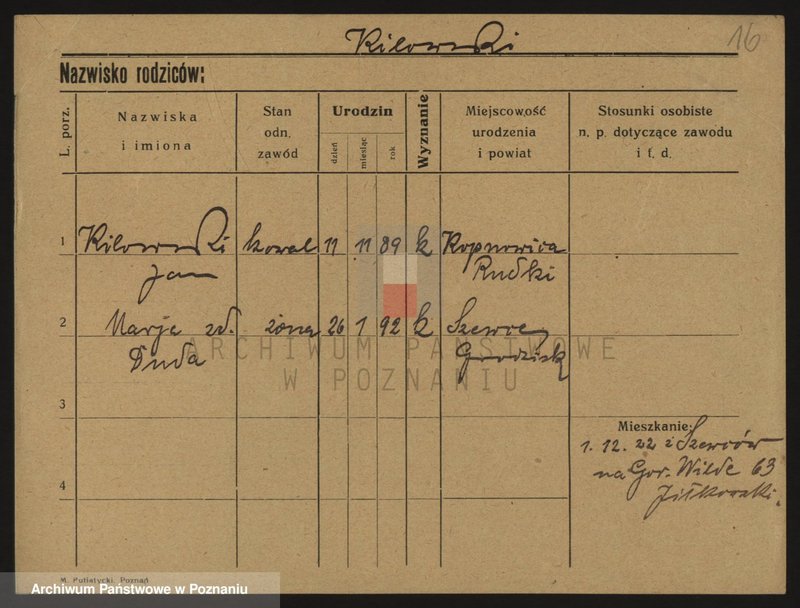 16
Kilowski
Nazwisko rodziców:
L. porz.
Nazwiska
i imiona
Stan
odn.
zawód
Urodzin
dzień
miesiąc
rok
Wyznanie
Miejscowość
urodzenia
i powiat
Stosunki osobiste
n. p. dotyczące zawodu
i t. d.
1 Kilowski kowal 11 11 89 k
Jan
2 Marja zd. żona 26 1 92 k Szewce
Duda Grodzisk
ARCHIWUM PAŃSTWOWE
W POZNANIU
3
Mieszkanie:
1. 12. 22 z Szewców
na Gór. Wilde 63
4
M. Putiatycki, Poznań
Archiwum Państwowe w Poznaniu